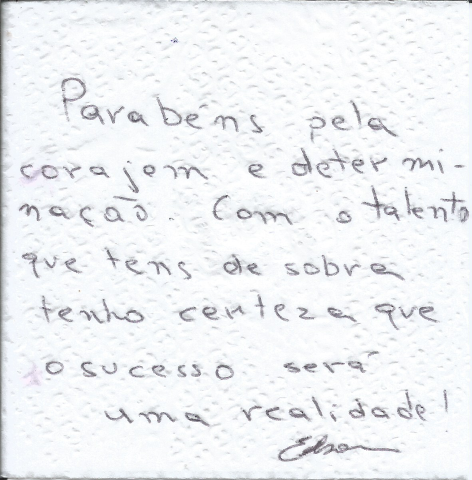 Parabéns pela
corajem e determi-
nação. Com o talento
que tens de sobra
tenho certeza que
o sucesso será
uma realidade!
Edson